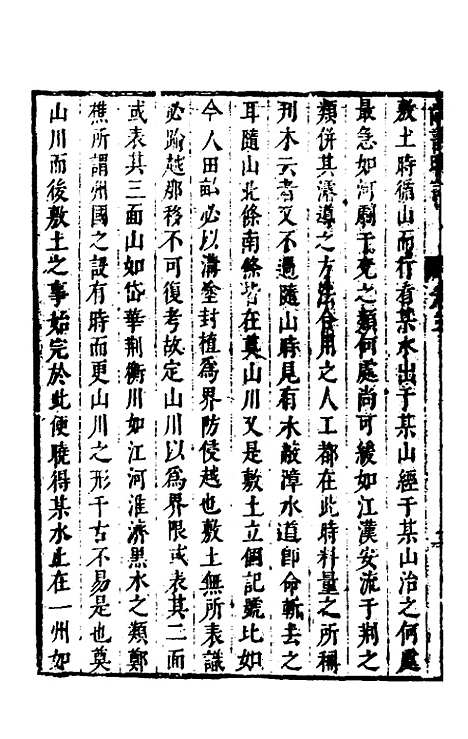 敷土時循山而行看某水出于某山經于某山治之何處
最急如河患于兗之類何處尚可緩如江漢安流于荆之
類併其濬導之方法合用之人工都在此時料量之所稱
刋木云者又不過隨山時見有木蔽障水道卽命斬去之
耳隨山北條南條皆在奠山川又是敷土立個記號比如
今人田畝必以溝塗封植爲界防侵越也敷土無所表識
必踰越那移不可復考故定山川以爲界限或表其二面
或表其三面山如岱華荆衡川如江河淮濟黑水之類鄭
樵所謂州國之設有時而更山川之形千古不易是也奠
山川而後敷土之事始完於此便曉得某水止在一州如